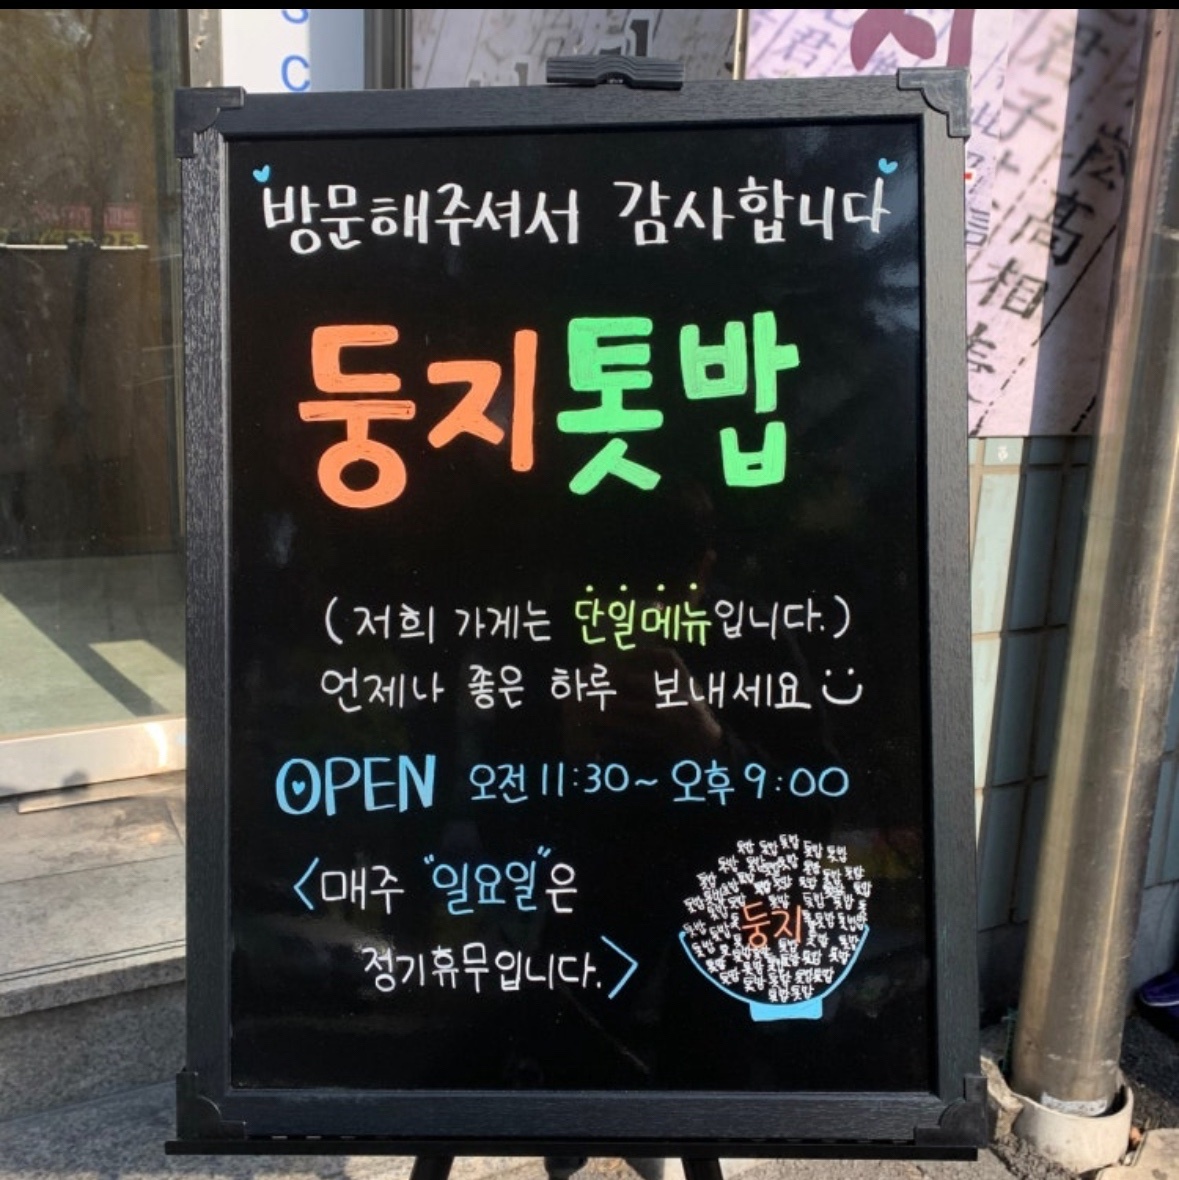 방문해주셔서 감사합니다
둥지톳밥
( 저희 가게는 단일메뉴입니다.)
언제나 좋은 하루 보내세요
OPEN 오전 11:30~ 오후 9:00
<매주 "일요일"은
정기휴무입니다.>
둥지
톳밥